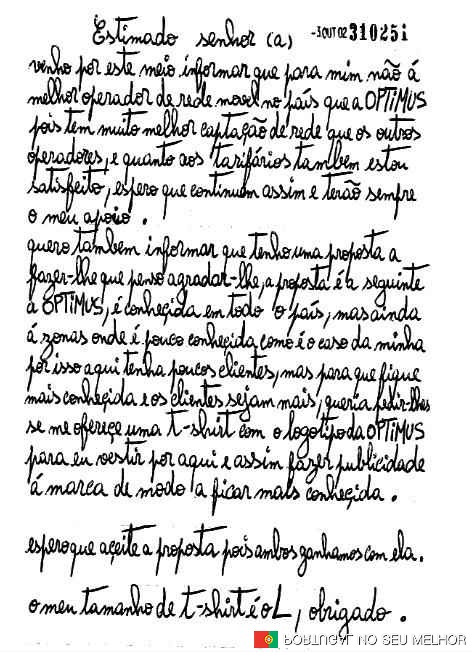 Estimado senhor (a) -3 OUT 02 310251
venho por este meio informar que para mim não á
melhor operador de rede movel no país que a OPTiMUS
pois tem muito melhor captação de rede que os outros
operadores, e quanto aos tarifários tambem estou
satisfeito, espero que continuem assim e terão sempre
o meu apoio .
quero tambem informar que tenho uma proposta a
fazer-lhe que penso agradar-lhe, a proposta é a seguinte
a OPTiMUS, é conheçida em todo o país, mas ainda
á zonas onde é pouco conheçida como é o caso da minha
por isso aqui tenha poucos clientes, mas para que fique
mais conheçida e os clientes sejam mais, queria pedir-lhes
se me ofereçe uma t-shirt com o logotipo da OPTiMUS
para eu vestir por aqui e assim fazer publicidade
á marca de modo a ficar mais conheçida .
espero que açeite a proposta pois ambos ganhamos com ela .
o meu tamanho de t-shirt é o L, obrigado .
PORTUGAL NO SEU MELHOR